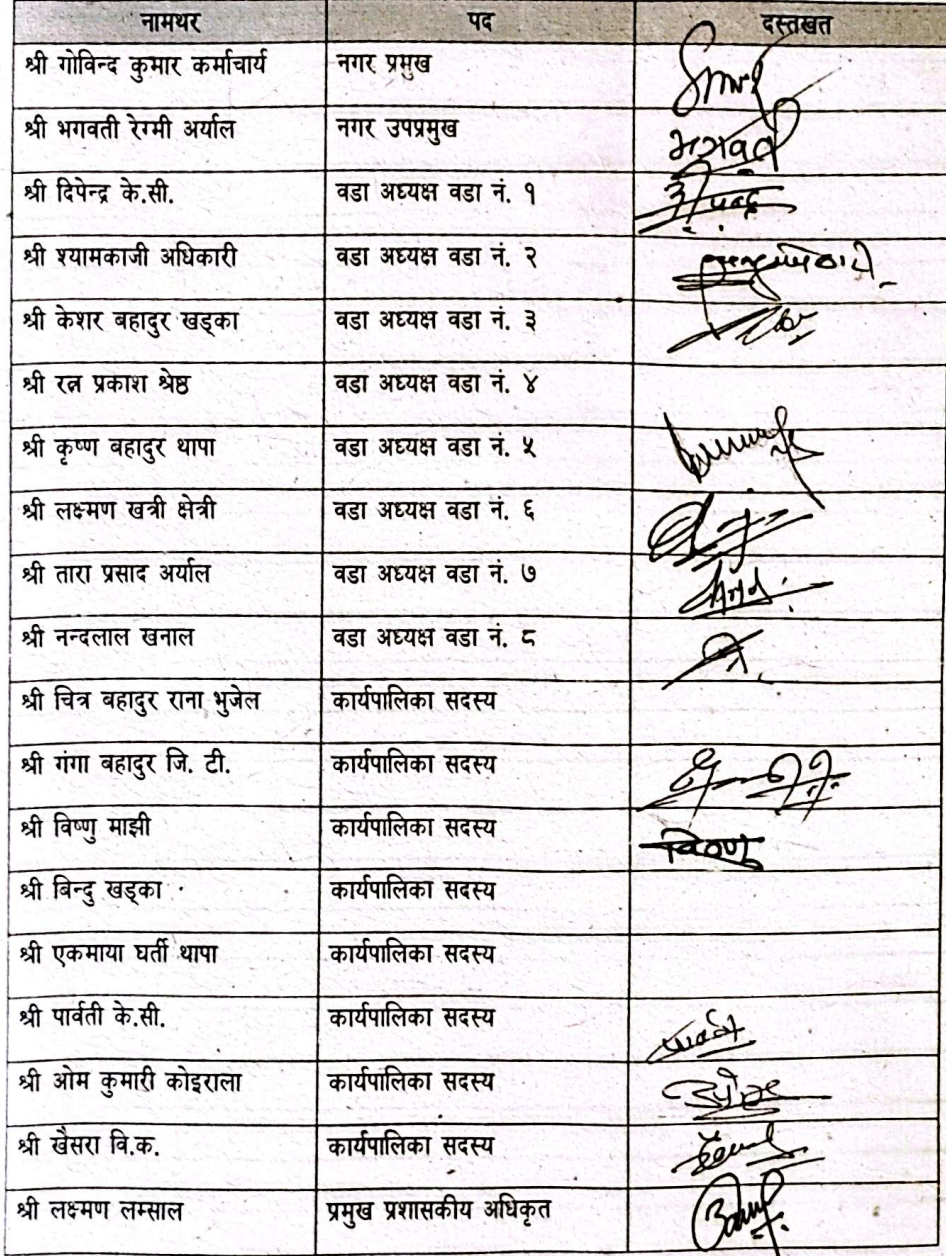 नामथर पद दस्तखत
श्री गोविन्द कुमार कर्माचार्य नगर प्रमुख
श्री भगवती रेग्मी अर्याल नगर उपप्रमुख भगवती
श्री दिपेन्द्र के.सी. वडा अध्यक्ष वडा नं. १
श्री श्यामकाजी अधिकारी वडा अध्यक्ष वडा नं. २
श्री केशर बहादुर खड्का वडा अध्यक्ष वडा नं. ३
श्री रत्न प्रकाश श्रेष्ठ वडा अध्यक्ष वडा नं. ४
श्री कृष्ण बहादुर थापा वडा अध्यक्ष वडा नं. ५
श्री लक्ष्मण खत्री क्षेत्री वडा अध्यक्ष वडा नं. ६
श्री तारा प्रसाद अर्याल वडा अध्यक्ष वडा नं. ७
श्री नन्दलाल खनाल वडा अध्यक्ष वडा नं. ८
श्री चित्र बहादुर राना भुजेल कार्यपालिका सदस्य
श्री गंगा बहादुर जि. टी. कार्यपालिका सदस्य
श्री विष्णु माझी कार्यपालिका सदस्य विष्णु
श्री बिन्दु खड्का कार्यपालिका सदस्य
श्री एकमाया घर्ती थापा कार्यपालिका सदस्य
श्री पार्वती के.सी. कार्यपालिका सदस्य
श्री ओम कुमारी कोइराला कार्यपालिका सदस्य
श्री खैसरा वि.क. कार्यपालिका सदस्य
श्री लक्ष्मण लम्साल प्रमुख प्रशासकीय अधिकृत